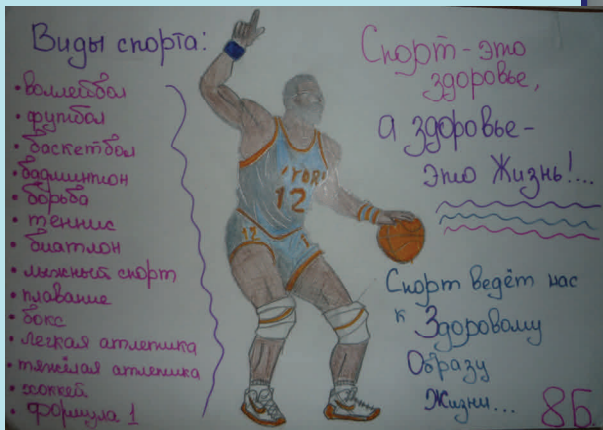 Виды спорта:
• воллейбол
• футбол
• баскетбол
• бадминтон
• борьба
• теннис
• биатлон
• лыжный спорт
• плавание
• бокс
• легкая атлетика
• тяжёлая атлетика
• хоккей
• формула 1
YORK
12
12
1
Спорт - это
здоровье,
а здоровье -
это Жизнь!...
Спорт ведёт нас
к Здоровому
Образу
Жизни...
8Б